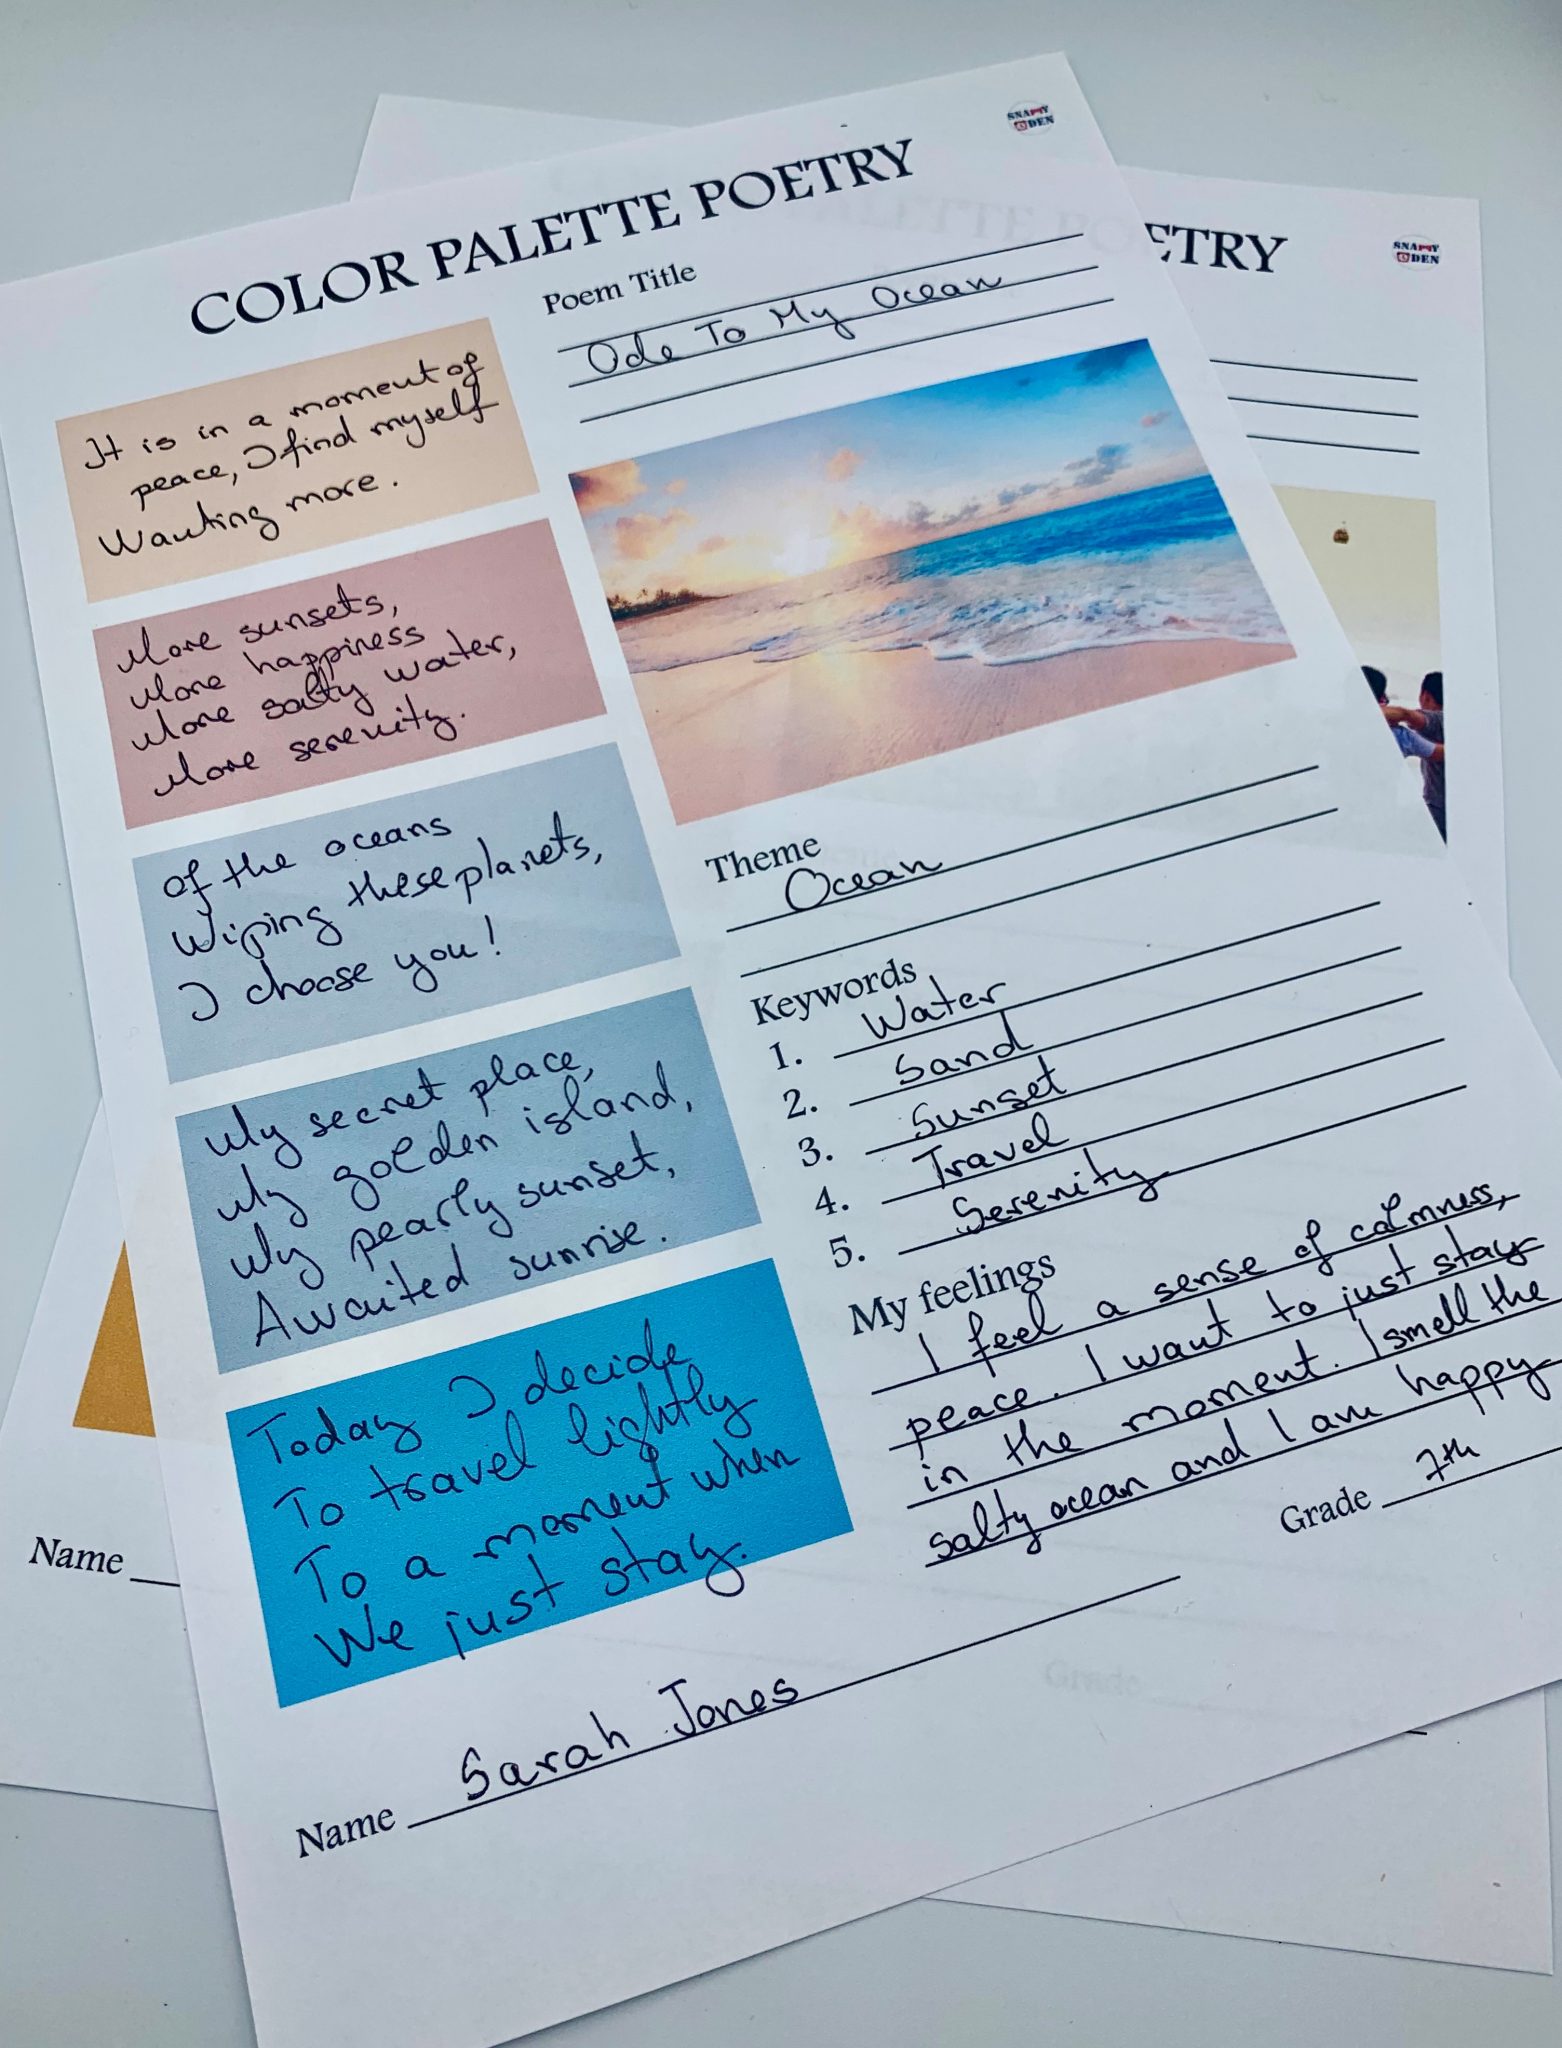 SNAPPY
DEN
COLOR PALETTE POETRY
Poem Title
Ode To My Ocean
It is in a moment of
peace, I find myself
Wanting more.
More sunsets,
More happiness
More salty water,
More serenity.
Of the oceans
Wiping these planets,
I choose you!
My secret place,
My golden island,
My pearly sunset,
Awaited sunrise.
Today I decide
To travel lightly
To a moment when
We just stay.
Theme
Ocean
Keywords
1. Water
2. Sand
3. Sunset
4. Travel
5. Serenity
My feelings
I feel a sense of calmness,
peace. I want to just stay
in the moment. I smell the
salty ocean and I am happy
Grade 7th
Name Sarah Jones
ETRY
SNAPPY
DEN
Name
Grade